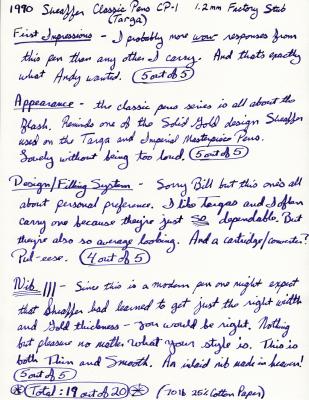 1990 Sheaffer Classic Pens CP-1 1.2mm Factory Stub
(Targa)
First Impressions - I probably more wow responses from
this pen than any other I carry. And that's exactly
what Andy wanted. 5 out of 5
Appearance - the classic pens series is all about the
flash. Reminds one of the Solid Gold design Sheaffer
used on the Targa and Imperial Masterpiece Pens.
Lovely without being too loud. 5 out of 5
Design/Filling System - Sorry Bill but this one's all
about personal preference. I like Targas and I often
carry one because they're just so dependable. But
they're also so average looking. And a cartridge/converter?
Pul-eese. 4 out of 5
Nib - Since this is a modern pen one might expect
that Sheaffer had learned to get just the right width
and Gold thickness - you would be right. Nothing
but pleasure no matter what your style is. This is
both Thin and Smooth. An inlaid nib made in heaven!
5 out of 5
Total: 19 out of 20 (70 lb 25% Cotton Paper)